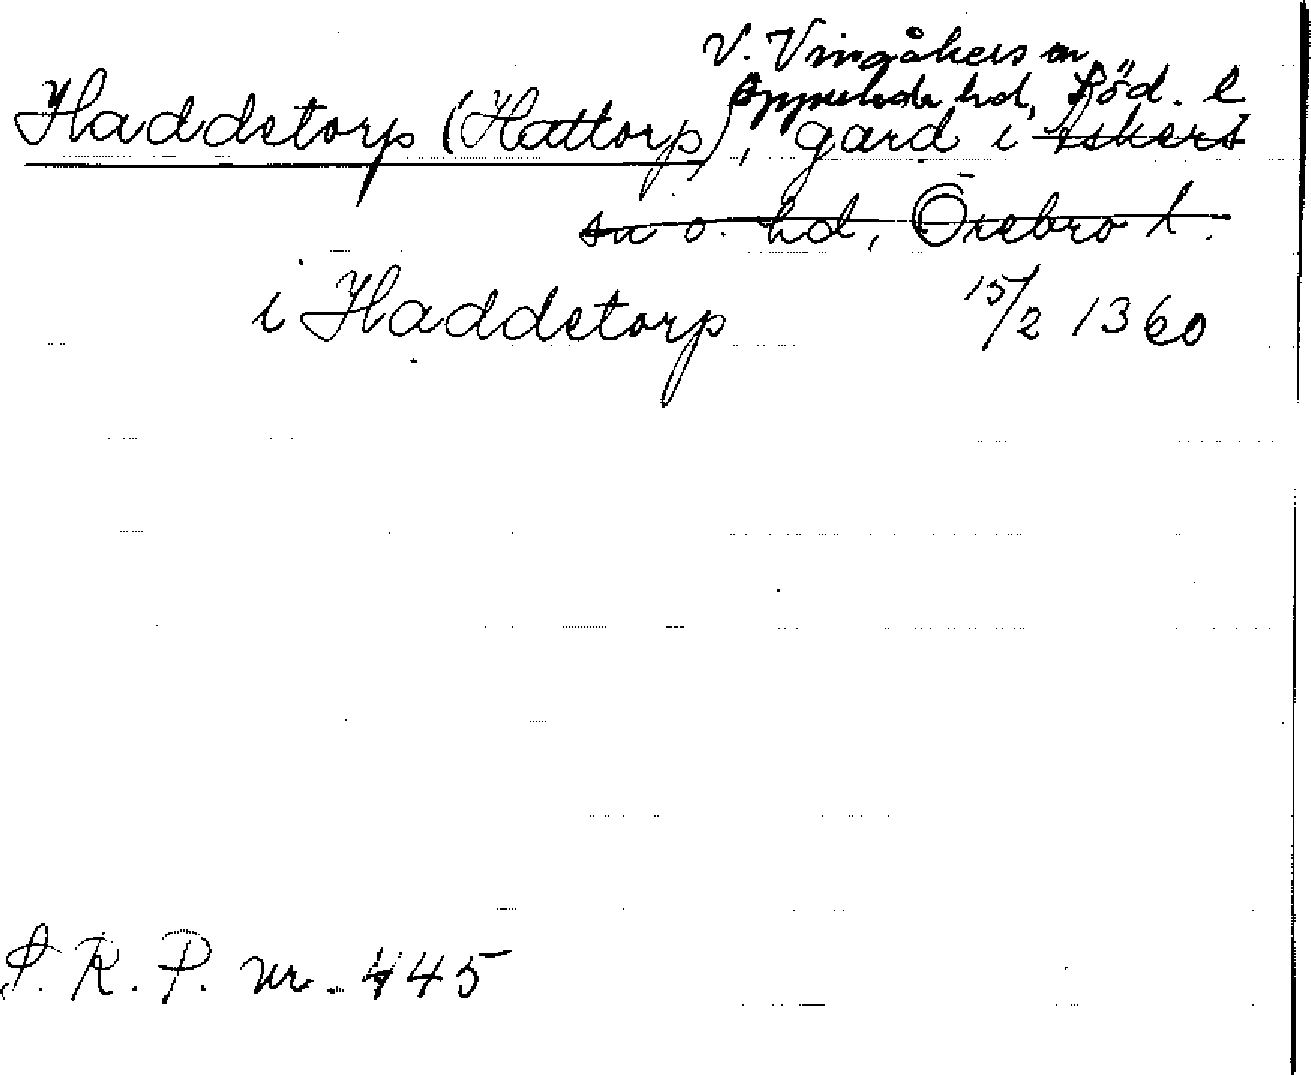 V. Vingåkers sn
Oppunda hd, Söd. l
Haddetorp (Hattorp), gård i Askers
sn o. hd, Örebro l.
i Haddetorp 15/2 1360
S. R. P. nr. 445